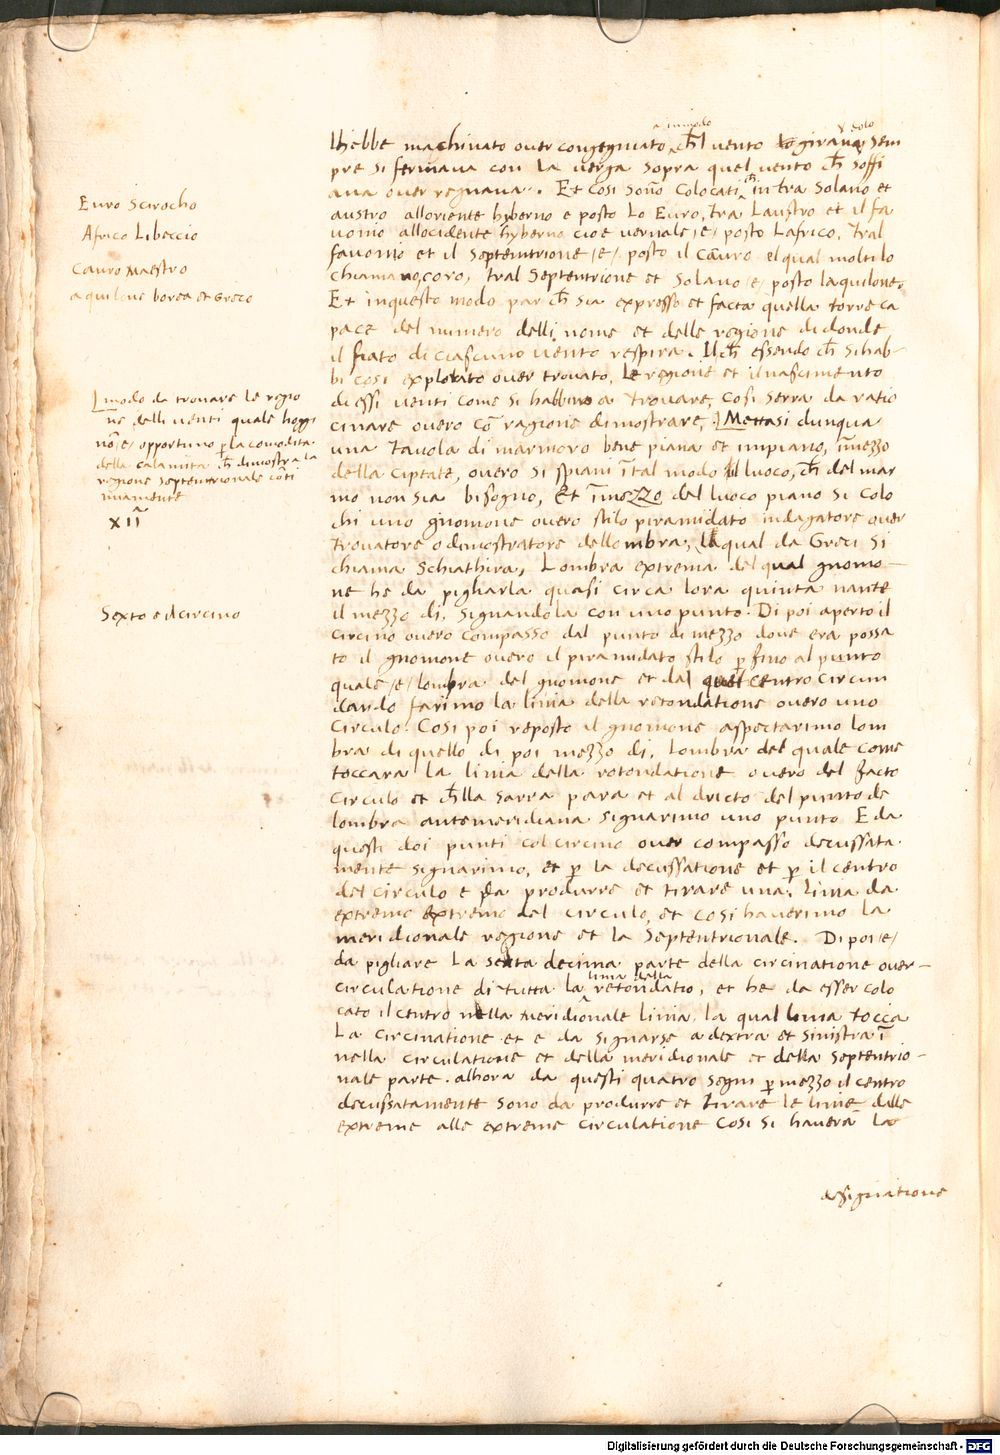 Euro Scirocho
Africo Libeccio
Cauro Maestro
aquilone borea et Greco
Lmodo da trovare le regio
ne delli venti quale hoggi
nō /e/ opportuno p̱ la comodita
della calamita ch̄ dimostra la
regione septentrionale cōti
nuamente
XII
Sexto e il circino
lhebbe machinato over congegniato ch̄l vento girando sem
pre si fermava con la verga sopra quel vento ch̄ soffi
ava over regnava. Et cosi sonno colocati ch̄ in tra Solano et
austro alloriente hyberno e posto lo Euro, tra Laustro et il fa
vonio allocidente hyberno cioe vernale /e/ posto Lafrico, tral
favonio et il septemtrione /e/ posto il cauro el qual molti lo
chiamano, coro, tral Septentrione et Solano /e/ posto laquilone.
Et inquesto modo par ch̄ sia expresso et facta quella torre ca
pace del numero delli nome et delle regione di donde
il fiato di ciascuno vento respira. Il ch̄ essendo ch̄ si hab-
bi cosi explorato over trovato, le regione et il nascimento
di essi venti come si habbino a trovare, cosi serra da ratio
cinare overo cō ragione dimostrare. Mettasi dunqua
una tavola di marmoro bene piana et impiano, ī mezzo
della ciptate, overo si spiani ī tal modo il luoco, ch̄ del mar
mo non sia bisogno, Et ī mezzo del luoco piano si colo
chi uno gnomone overo stilo piramidato indagatore over
trovatore o dimostratore dellombra, laqual da Greci si
chiama Schiathira, Lombra extrema del qual gnomo-
ne he da pigliarla quasi circa lora quinta nante
il mezzo di, signandola con uno punto. Di poi aperto il
circino overo compasso dal punto di mezzo dove era possa
to il gnomone overo il piramidato stilo p̱ fino al punto
quale /e/ lombra del gnomone et dal quel centro circun
dando farimo la linia della retondatione overo uno
circulo. Cosi poi reposto il gnomone aspectarimo lom
bra di quello di poi mezzo di, Lombra del quale come
toccara la linia della rotondatione overo del facto
circulo et ch̄lla sarra para et al dricto del punto de
lombra antemeridiana signarimo uno punto E da
questi doi punti col circino over compasso decussata
mente signarimo, et p̱ la decussatione et p̱ il centro
del circulo e da produrre et tirare una, linia da
extremo extremo del circulo, et cosi haverimo la
meridionale regione et la Septentrionale. Di poi /e/
da pigliare La sexta decima parte della circinatione over-
linia della
circulatione di tutta la retondatio, et he da esser colo
cato il centro nella meridiōnale linia la qual linia tocca
La circinatione et e da signarse a dextra et sinistra ī
nella circulatione et della meridionale et della Septentrio-
nale parte. alhora da questi quatro segni p̱ mezzo il centro
decussatamente sono da produrre et tirare le linie dalle
extreme alle extreme circulatione cosi si haverā la
designatione
Digitalisierung gefördert durch die Deutsche Forschungsgemeinschaft - DFG